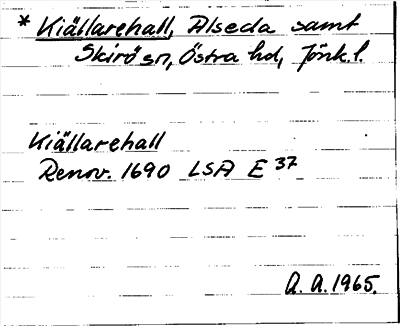 * Kiällarehall, Alseda samt
Skirö sn, Östra hd, Jönk. l.
Kiällarehall
Renov. 1690 LSA E 37
A. A. 1965.